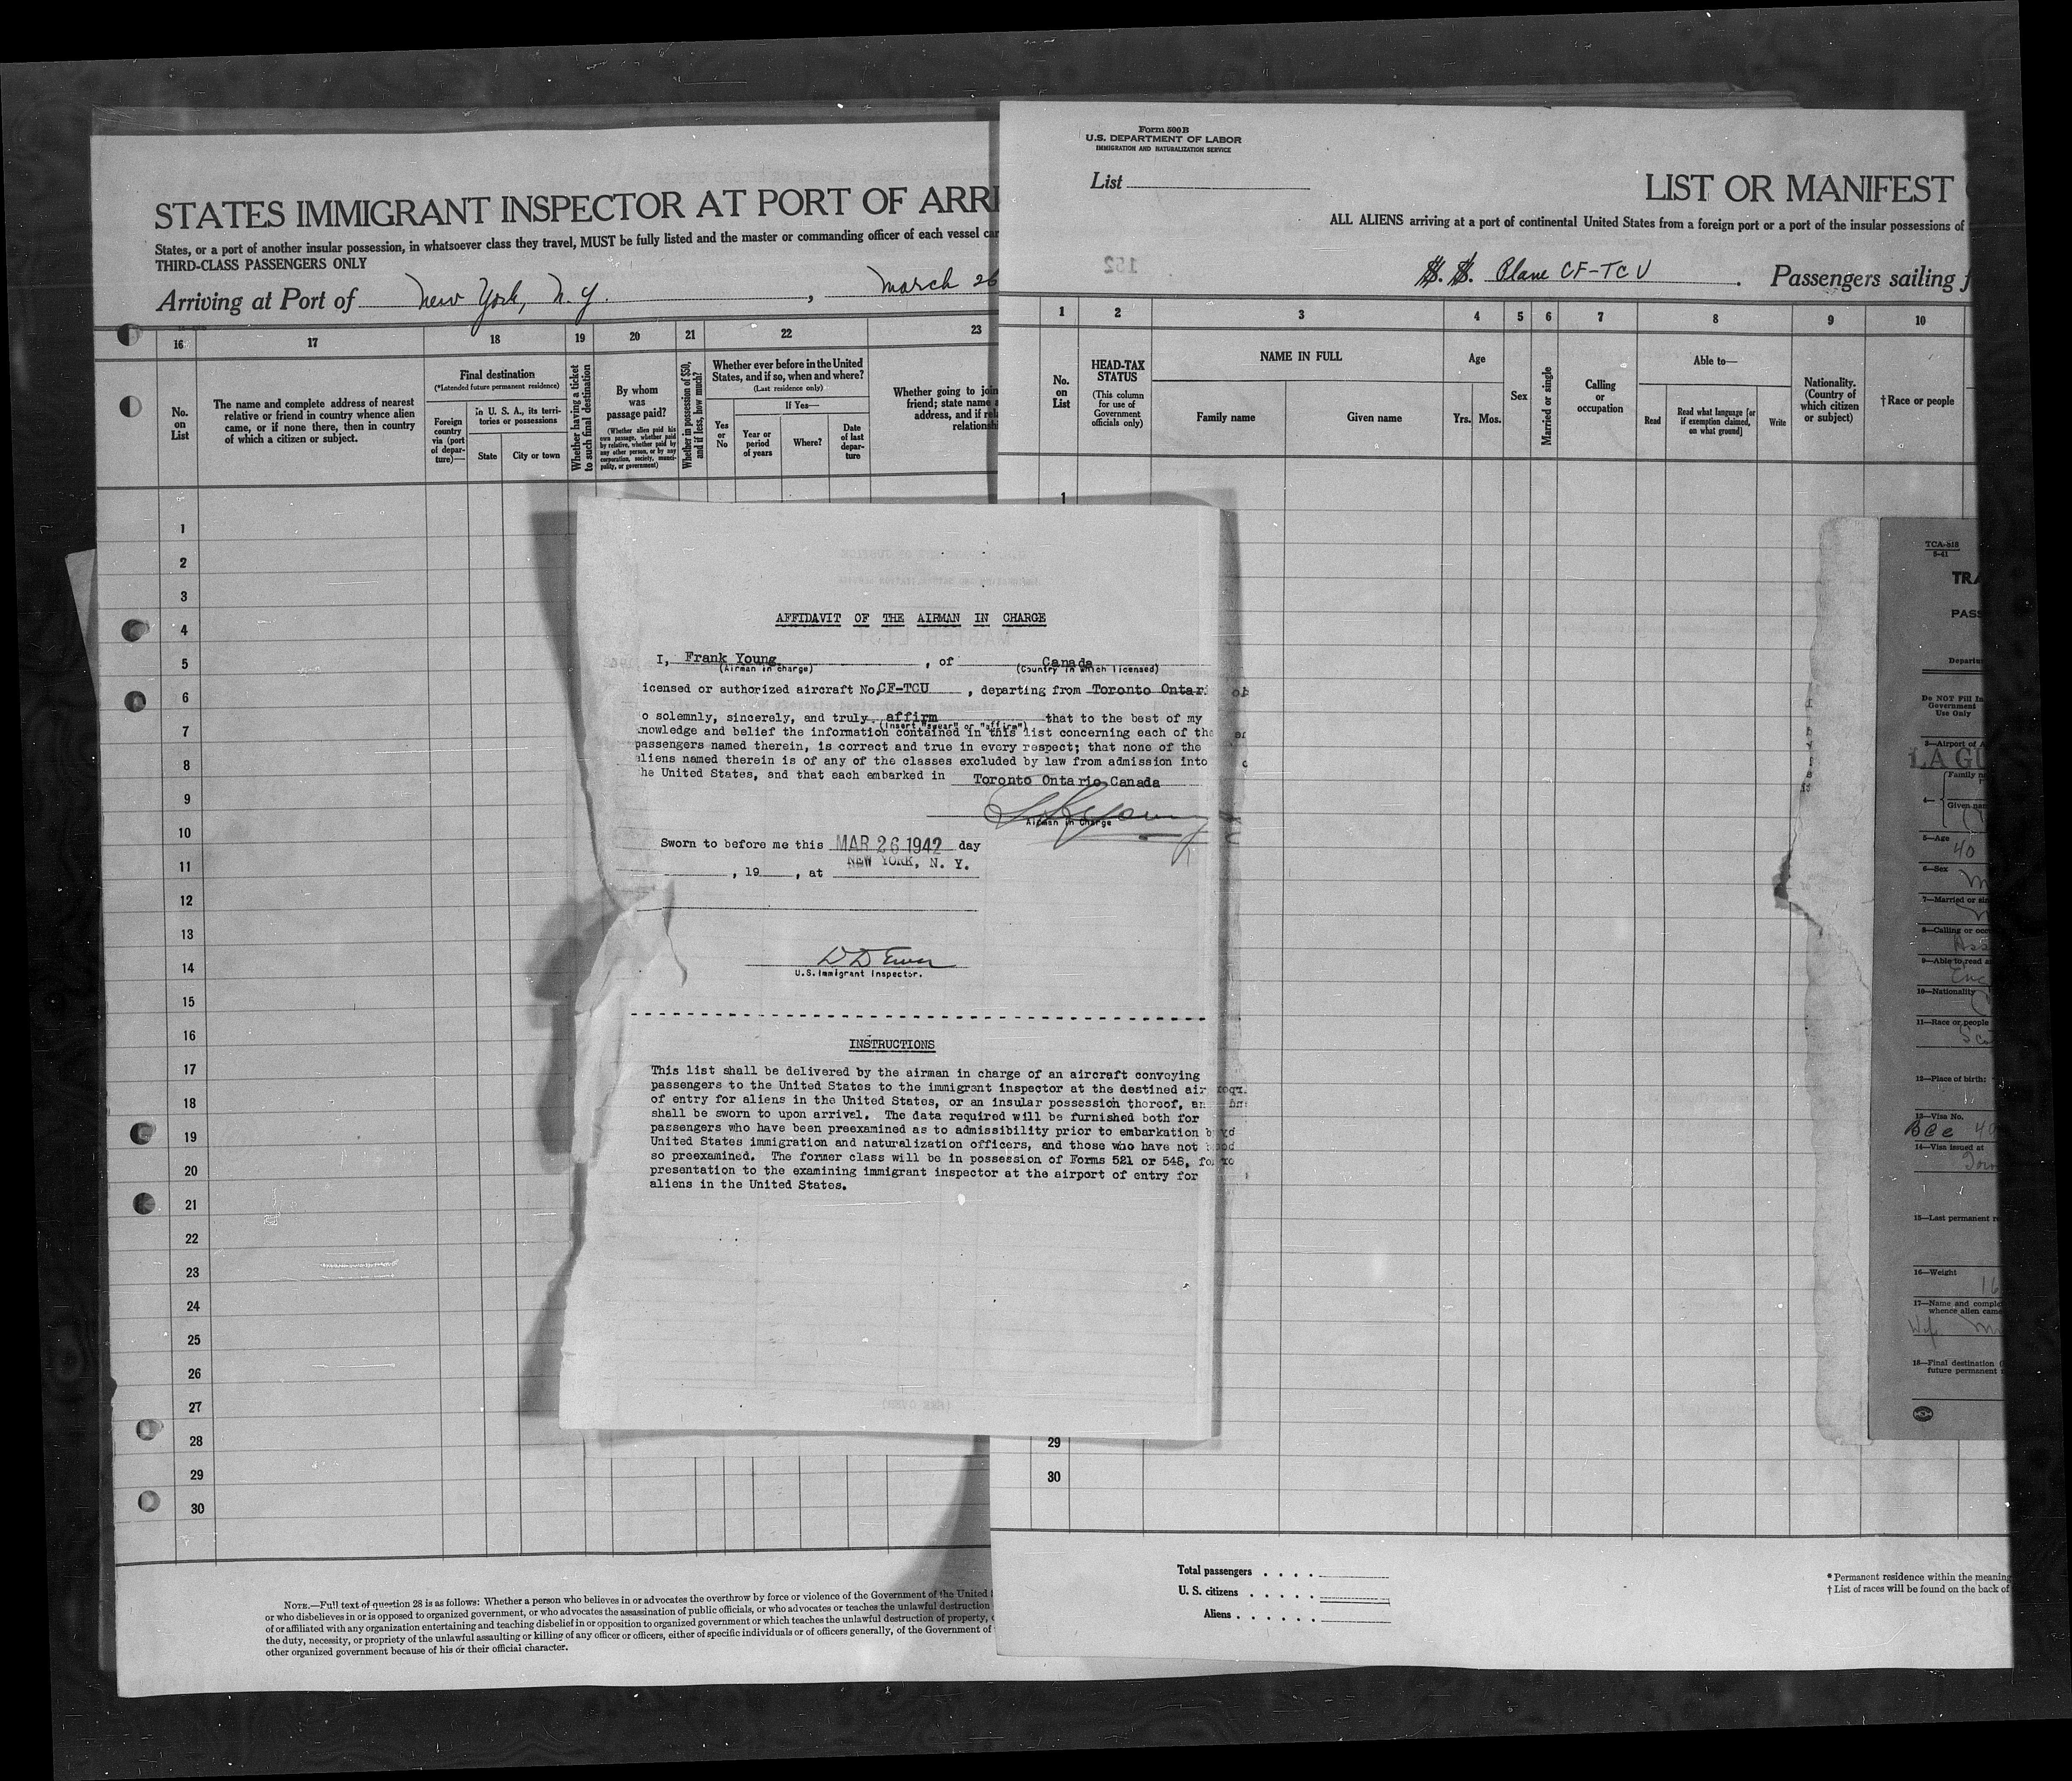 STATES IMMIGRANT INSPECTOR AT PORT OF ARRI
States, or a port of another insular possession, in whatsoever class they travel, MUST be fully listed and the master or commanding officer of each vessel car
THIRD-CLASS PASSENGERS ONLY
Arriving at Port of New York, N.Y. , March 26
16 17 18 19 20 21 22 23
No. on List
The name and complete address of nearest relative or friend in country whence alien came, or if none there, then in country of which a citizen or subject.
Final destination
(*Intended future permanent residence)
Foreign country via (port of departure)—
In U. S. A., its territories or possessions
State
City or town
Whether having a ticket to such final destination
By whom was passage paid?
(Whether alien paid his own passage, whether paid by relative, whether paid by any other person, or by any corporation, society, municipality, or government)
Whether in possession of $50, and if less, how much?
Whether ever before in the United States, and if so, when and where?
(Last residence only)
If Yes—
Yes or No
Year or period of years
Where?
Date of last departure
Whether going to join
friend; state name
address, and if rel
relationshi
1
2
3
4
5
6
7
8
9
10
11
12
13
14
15
16
17
18
19
20
21
22
23
24
25
26
27
28
29
30
NOTE.—Full text of question 28 is as follows: Whether a person who believes in or advocates the overthrow by force or violence of the Government of the United
or who disbelieves in or is opposed to organized government, or who advocates the assassination of public officials, or who advocates or teaches the unlawful destruction
of or affiliated with any organization entertaining and teaching disbelief in or opposition to organized government or which teaches the unlawful destruction of property,
the duty, necessity, or propriety of the unlawful assaulting or killing of any officer or officers, either of specific individuals or of officers generally, of the Government of
other organized government because of his or their official character.
AFFIDAVIT OF THE AIRMAN IN CHARGE
I, Frank Young , of Canada
(Airman in charge) (Country in which licensed)
icensed or authorized aircraft No. CF-TCU , departing from Toronto Ontar
o solemnly, sincerely, and truly affirm that to the best of my
(insert "swear" or "affirm")
nowledge and belief the information contained in this list concerning each of the
passengers named therein, is correct and true in every respect; that none of the
aliens named therein is of any of the classes excluded by law from admission into
he United States, and that each embarked in Toronto Ontario Canada
Airman in Charge
Sworn to before me this MAR 26 1942 day
NEW YORK, N. Y.
, 19 , at
U.S.Immigrant Inspector.
INSTRUCTIONS
This list shall be delivered by the airman in charge of an aircraft conveying
passengers to the United States to the immigrant inspector at the destined air
of entry for aliens in the United States, or an insular possession thereof, an
shall be sworn to upon arrival. The data required will be furnished both for
passengers who have been preexamined as to admissibility prior to embarkation b
United States immigration and naturalization officers, and those who have not
so preexamined. The former class will be in possession of Forms 521 or 548, fo
presentation to the examining immigrant inspector at the airport of entry for
aliens in the United States.
Form 500B
U.S. DEPARTMENT OF LABOR
IMMIGRATION AND NATURALIZATION SERVICE
List
LIST OR MANIFEST
ALL ALIENS arriving at a port of continental United States from a foreign port or a port of the insular possessions of
S. S. Plane CF-TCU . Passengers sailing f
1 2 3 4 5 6 7 8 9 10
No. on List
HEAD-TAX STATUS
(This column for use of Government officials only)
NAME IN FULL
Family name
Given name
Age
Yrs. Mos.
Sex
Married or single
Calling or occupation
Able to—
Read
Read what language [or if exemption claimed, on what ground]
Write
Nationality. (Country of which citizen or subject)
†Race or people
1
29
30
Total passengers
U. S. citizens
Aliens
* Permanent residence within the meaning
† List of races will be found on the back of
TCA-518
5-41
TRA
PASS
Departu
Do NOT Fill In
Government
Use Only
3—Airport of A
LA GU
4—
Family n
Given nam
5—Age
40
6—Sex
M
7—Married or sin
M
8—Calling or occ
Ass
9—Able to read a
Eng
10—Nationality
11—Race or people
Sco
12—Place of birth:
13—Visa No.
BCC 40
14—Visa issued at
15—Last permanent r
16—Weight
16
17—Name and comple
whence alien came
18—Final destination
future permanent